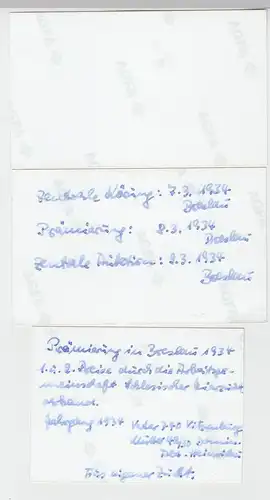 AGFA
Zentrale Körung: 7.3.1934
Breslau
Prämierung: 8.3.1934
Breslau
Zentrale Auktion: 9.3.1934
Breslau
Prämierung in Breslau 1934
1. u. 2. Preise durch die Arbeitsge-
meinschaft schlesischer
Jahrgang 1934 Vater
Mutter
Aus eigener Zucht.